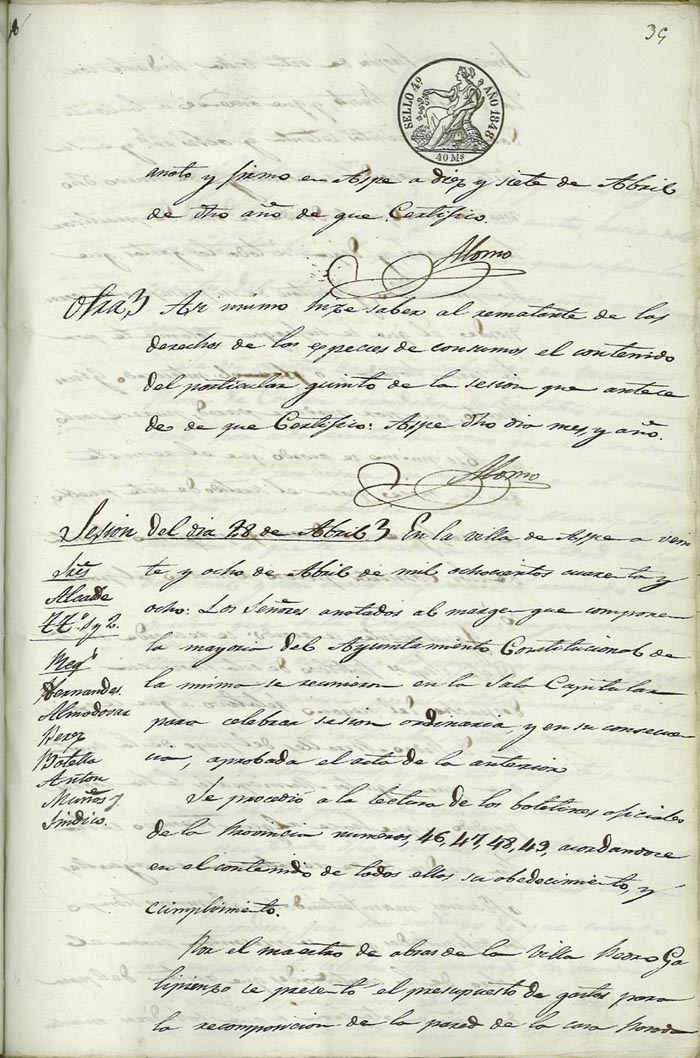 39
SELLO 4º AÑO 1848
40 Ms
anoto y firmo en Aspe a diez y siete de Abril
de dho año de que Certifico.
Alonso
Otra} Asi mismo hize saber al rematante de los
derechos de las especies de consumos el contenido
del particular quinto de la sesion que antece
de de que Certifico: Aspe dho dia mes, y año.
Alonso
Sesion del dia 28 de Abril} En la villa de Aspe a vein
te y ocho de Abril de mil ochocientos cuarenta y
ocho: Los Señores anotados al margen que componen
la mayoria del Ayuntamiento Constitucional de
la misma se reunieron en la Sala Capitular
para celebrar sesion ordinaria, y en su consecuen
cia, aprobada el acta de la anterior
Sres
Alcalde
TTes 1 y 2.
Regs
Hernandes
Almodovar
Perez
Botella
Anton
Muños y
Sindico.
Se procedió a la lectura de los boletines oficiales
de la Provincia numeros, 46, 47, 48, 49, acordandose
en el contenido de todos ellos su obedecimiento, y
cumplimiento.
Por el maestro de obras de la Villa Pedro Ga
lipienzo se presentó el presupuesto de gastos para
la recomposicion de la pared de la casa